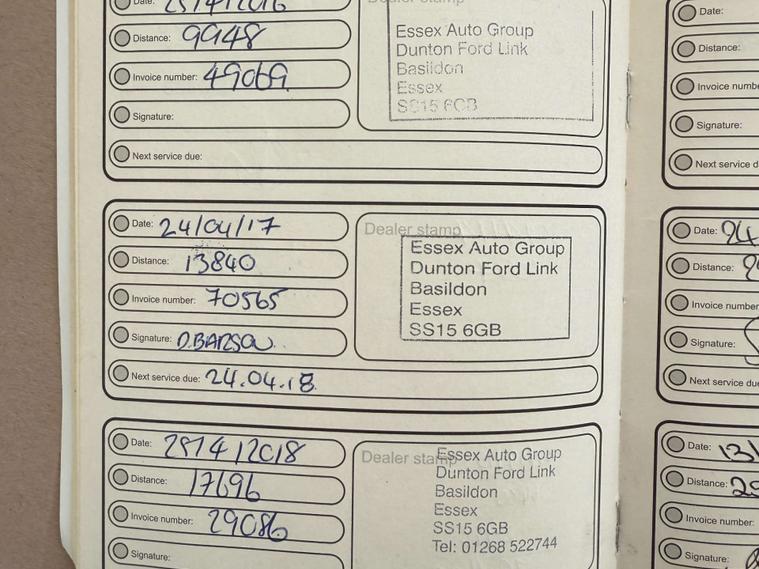 Date: 25/4/2016
Dealer stamp
Distance: 9948
Invoice number: 49069
Signature:
Next service due:
Essex Auto Group
Dunton Ford Link
Basildon
Essex
SS15 6GB
Date: 24/04/17
Distance: 13840
Invoice number: 70565
Signature: D.BARSON
Next service due: 24.04.18
Dealer stamp
Essex Auto Group
Dunton Ford Link
Basildon
Essex
SS15 6GB
Date: 25/4/2018
Distance: 17696
Invoice number: 29086
Signature:
Dealer stamp
Essex Auto Group
Dunton Ford Link
Basildon
Essex
SS15 6GB
Tel: 01268 522744
Date:
Distance:
Invoice numbe
Signature:
Next service d
Date: 24
Distance:
Invoice number
Signature:
Next service due
Date: 13/
Distance: 2
Invoice number:
Signature: